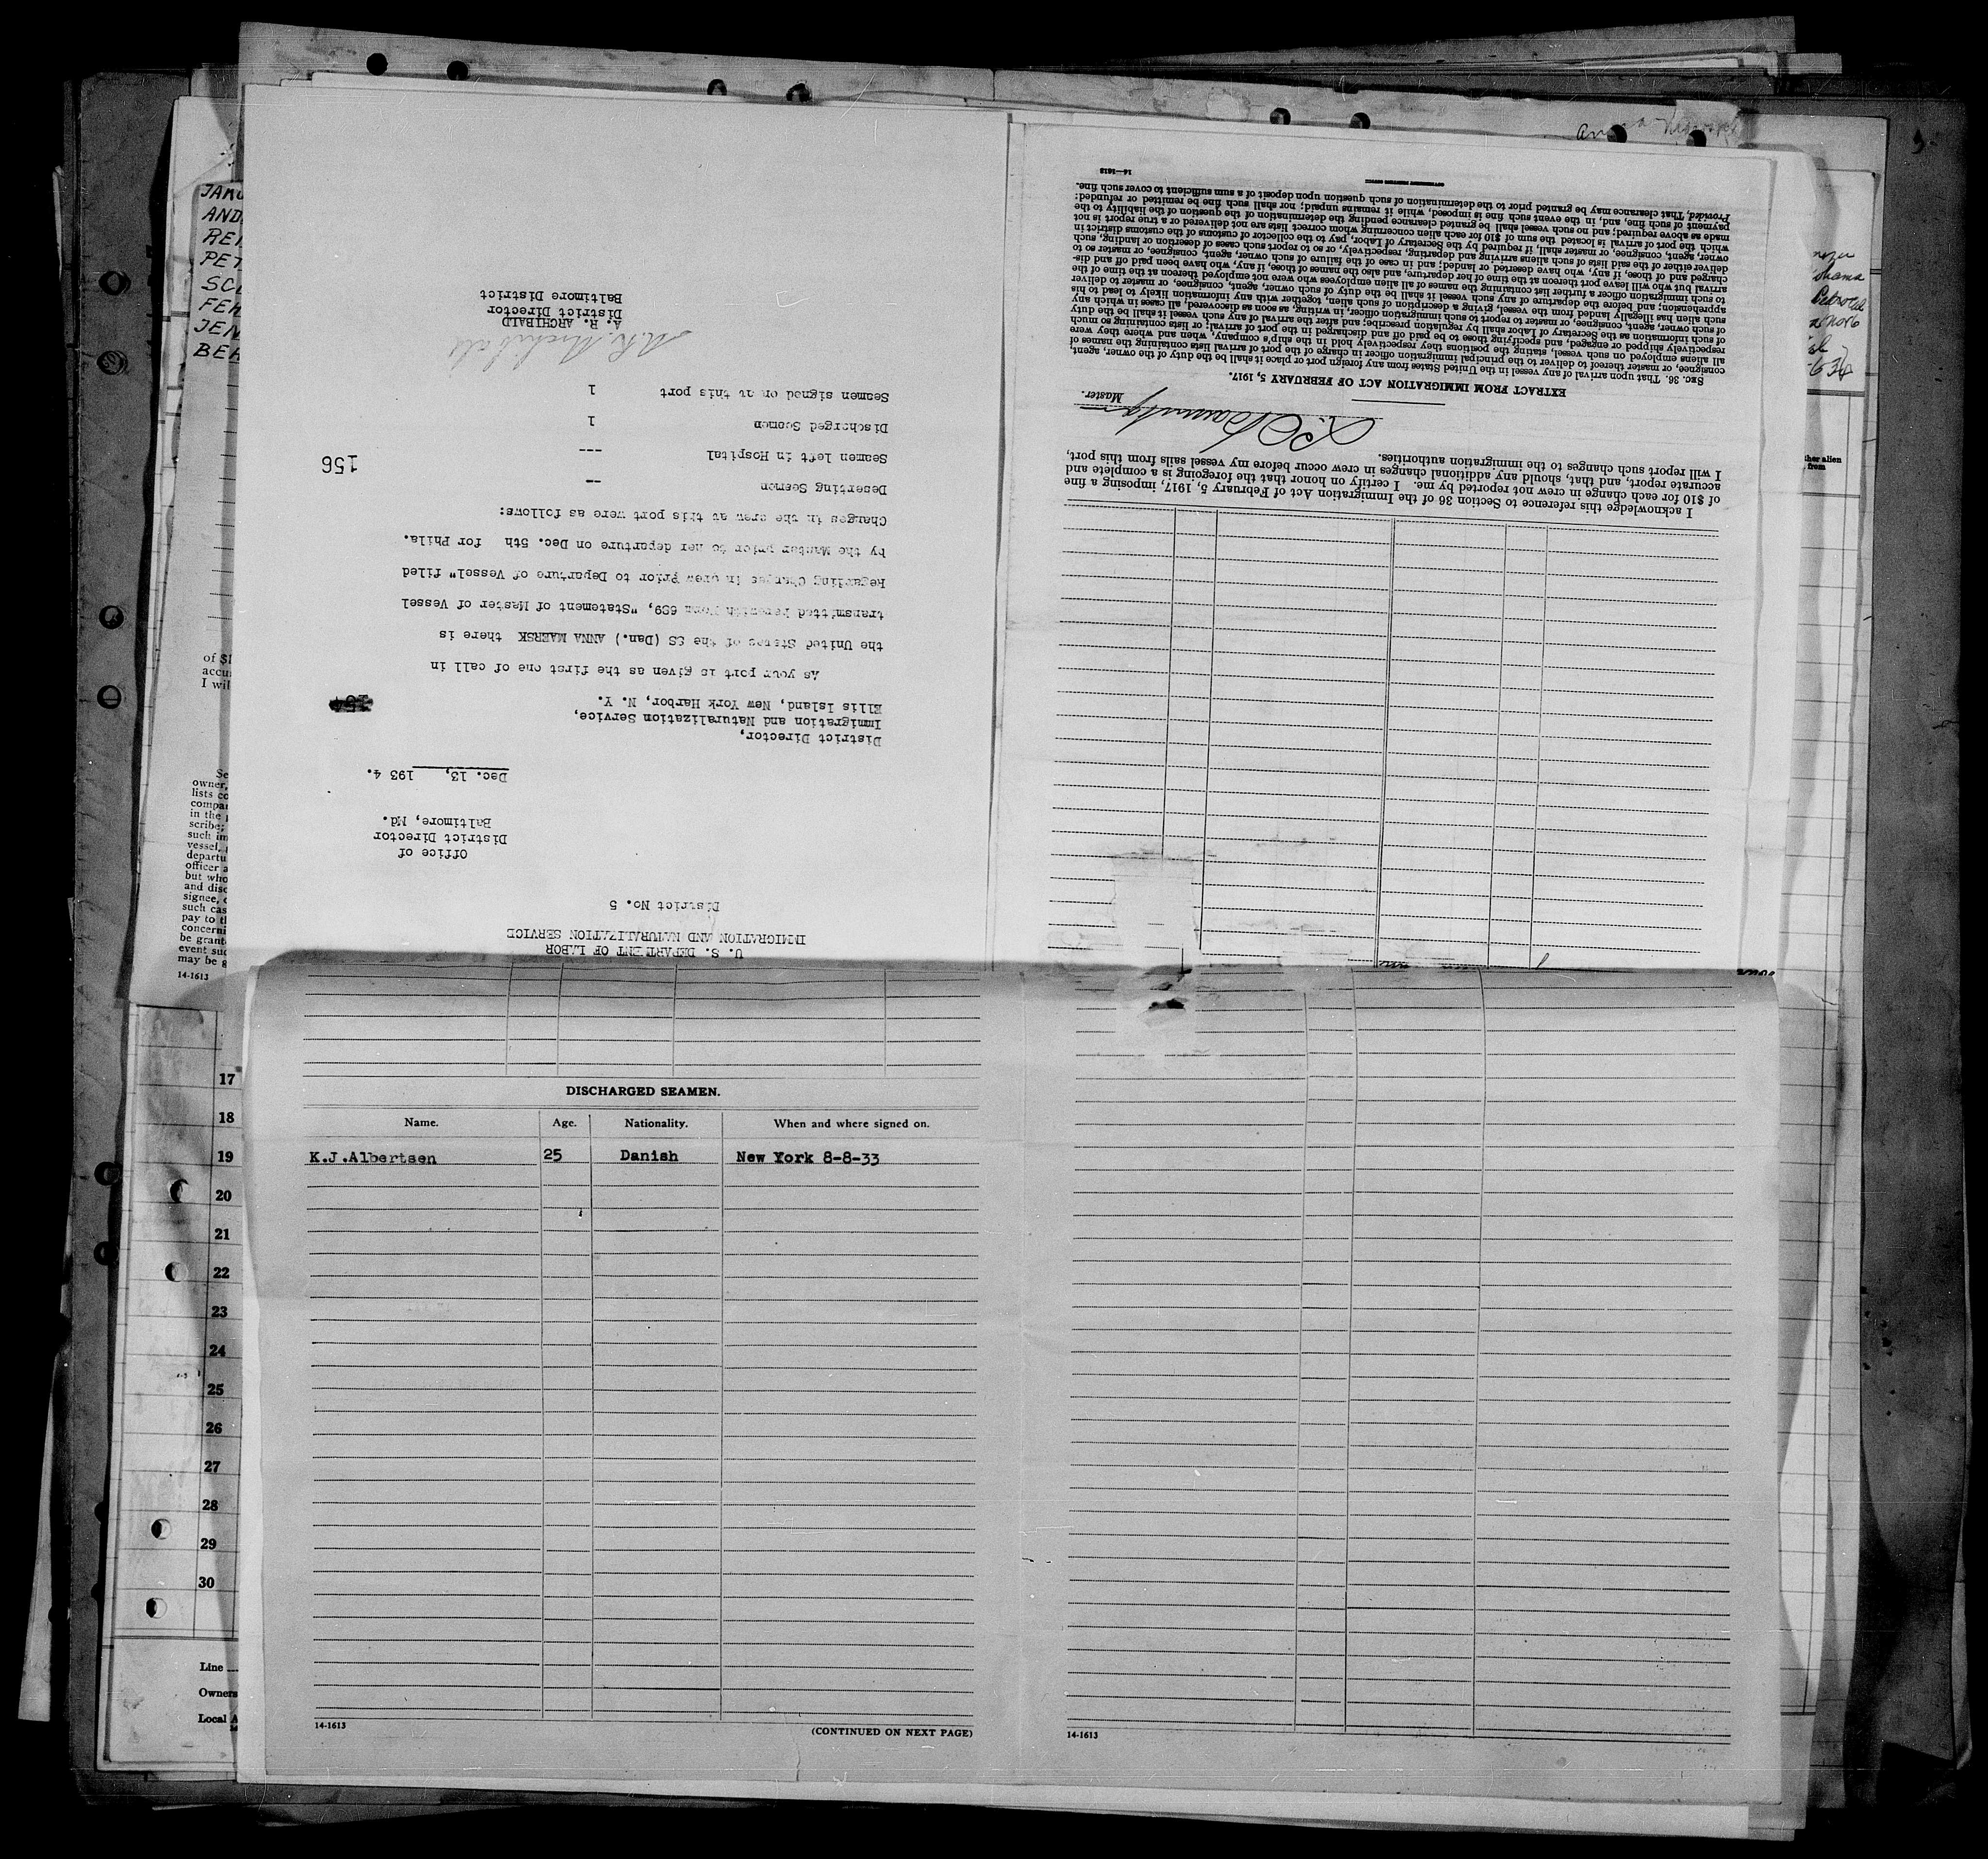 U. S. DEPARTMENT OF LABOR
IMMIGRATION AND NATURALIZATION SERVICE
District No. 5
Office of
District Director
Baltimore, Md.
Dec. 13, 193 4.
District Director,
Immigration and Naturalization Service,
Ellis Island, New York Harbor, N. Y.
As your port is given as the first one of call in
the United States of the SS (Dan.) ANNA MAERSK there is
transmitted herewith Form 689, "Statement of Master of Vessel
Regarding Changes in Crew Prior to Departure of Vessel" filed
by the Master prior to her departure on Dec. 5th for Phila.
Changes in the crew at this port were as follows:
Deserting Seamen --
Seamen left in Hospital ---
156
Discharged Seamen 1
Seamen signed on at this port 1
A. R. Archibald
A. R. ARCHIBALD
District Director
Baltimore District
I acknowledge this reference to Section 36 of the Immigration Act of February 5, 1917, imposing a fine
of $10 for each change in crew not reported by me. I certify on honor that the foregoing is a complete and
accurate report, and that, should any additional changes in crew occur before my vessel sails from this port,
I will report such changes to the immigration authorities.
Master.
EXTRACT FROM IMMIGRATION ACT OF FEBRUARY 5, 1917.
SEC. 36. That upon arrival of any vessel in the United States from any foreign port or place it shall be the duty of the owner, agent,
consignee, or master thereof to deliver to the principal immigration officer in charge of the port of arrival lists containing the names of
all aliens employed on such vessel, stating the positions they respectively hold in the ship's company, when and where they were
respectively shipped or engaged, and specifying those to be paid off and discharged in the port of arrival; or lists containing so much
of such information as the Secretary of Labor shall by regulation prescribe; and after the arrival of any such vessel it shall be the duty
of such owner, agent, consignee, or master to report to such immigration officer, in writing, as soon as discovered, all cases in which any
such alien has illegally landed from the vessel, giving a description of such alien, together with any information likely to lead to his
apprehension; and before the departure of any such vessel it shall be the duty of such owner, agent, consignee, or master to deliver
to such immigration officer a further list containing the names of all alien employees who were not employed thereon at the time of the
arrival but who will leave port thereon at the time of her departure, and also the names of those, if any, who have been paid off and dis-
charged and of those, if any, who have deserted or landed; and in case of the failure of such owner, agent, consignee, or master so to
deliver either of the said lists of such aliens arriving and departing, respectively, or so to report such cases of desertion or landing, such
owner, agent, consignee, or master shall, if required by the Secretary of Labor, pay to the collector of customs of the customs district in
which the port of arrival is located the sum of $10 for each alien concerning whom correct lists are not delivered or a true report is not
made as above required; and no such vessel shall be granted clearance pending the determination of the question of the liability to the
payment of such fine, and, in the event such fine is imposed, while it remains unpaid; nor shall such fine be remitted or refunded:
Provided, That clearance may be granted prior to the determination of such question upon deposit of a sum sufficient to cover such fine.
14—1613
DISCHARGED SEAMEN.
Name. Age. Nationality. When and where signed on.
K.J.Albertsen 25 Danish New York 8-8-33
14-1613
(CONTINUED ON NEXT PAGE)
14-1613
of $1
accu
I wil
Se
owner,
lists co
compa
in the
scribe;
such im
vessel,
departu
officer a
but who
and disc
signee,
such cas
pay to t
concerni
be grant
event suc
may be g
14-1613
17
18
19
20
21
22
23
24
25
26
27
28
29
30
Line
Owners
Local A